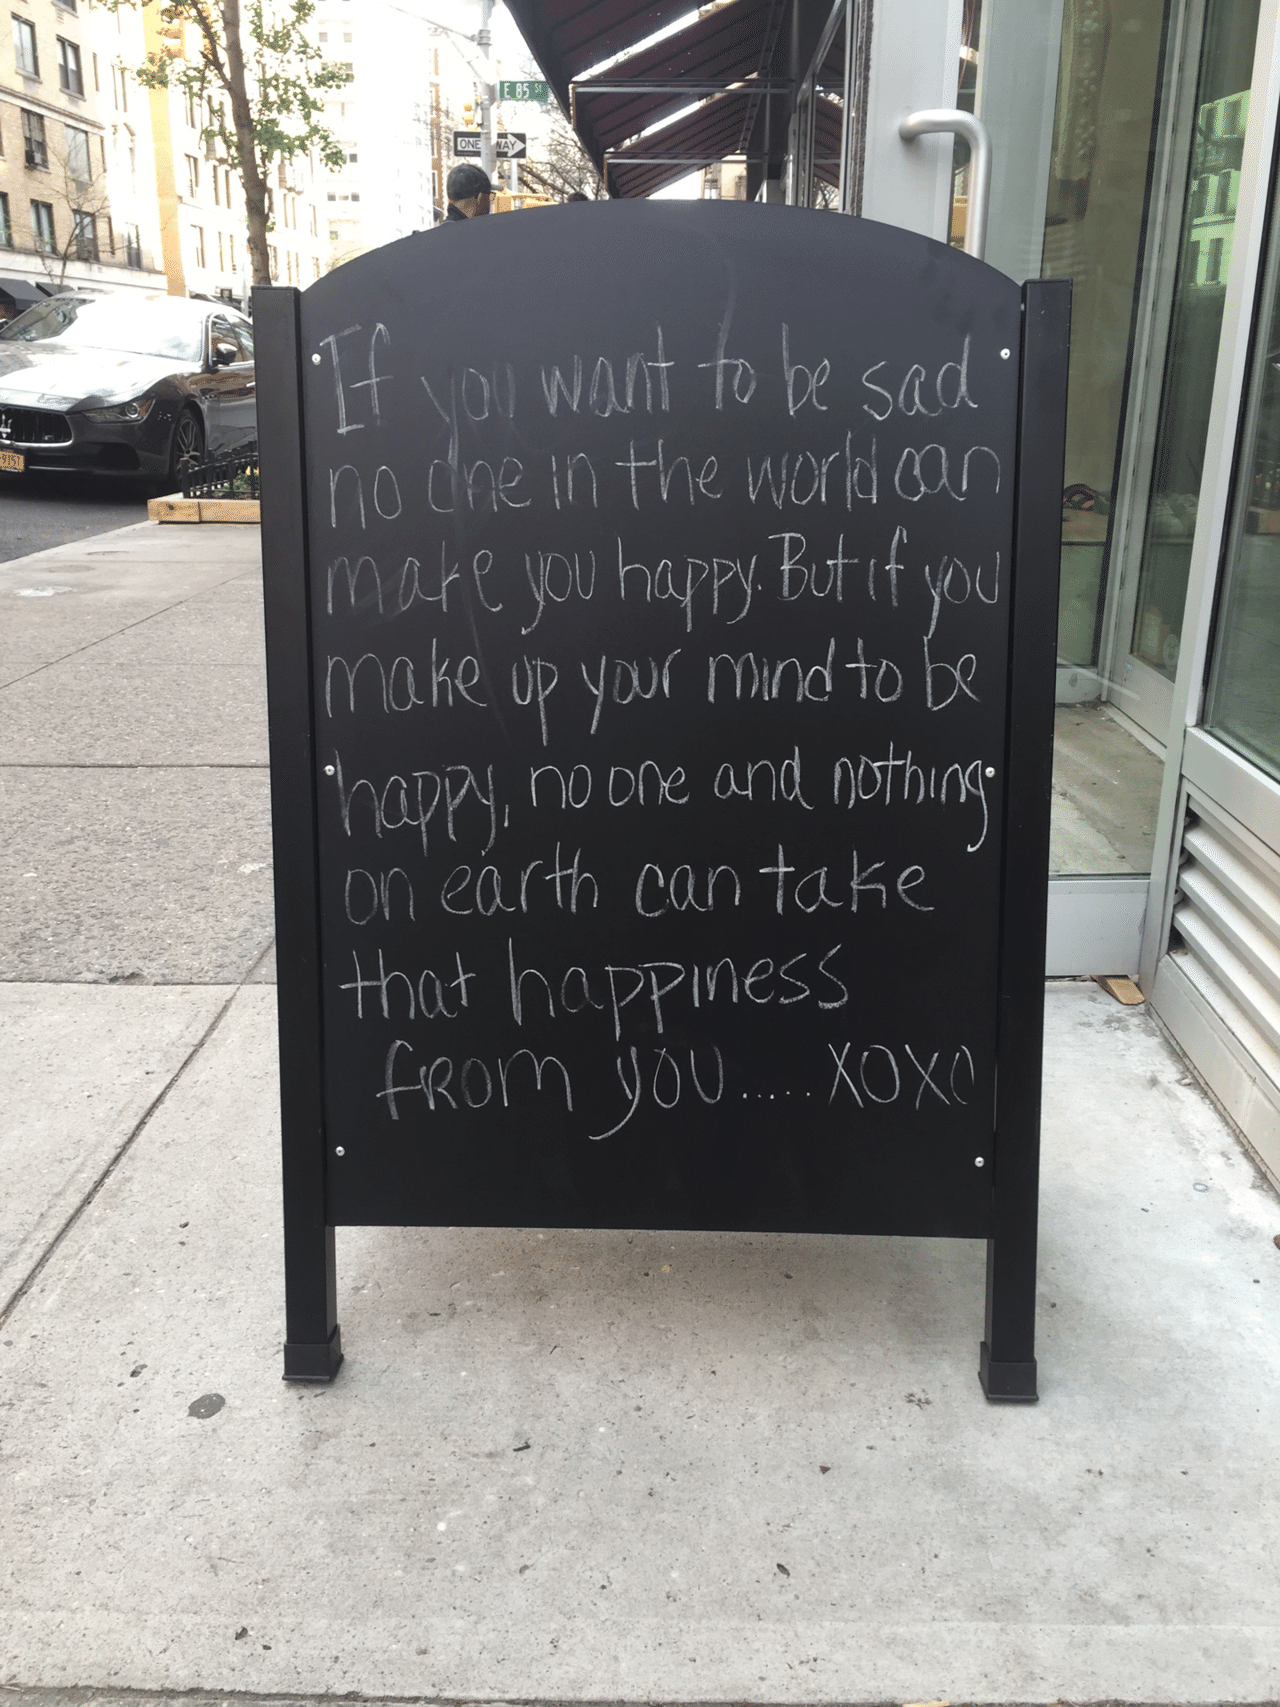 E 85 ST
ONE WAY
If you want to be sad
no one in the world can
make you happy. But if you
make up your mind to be
happy, no one and nothing
on earth can take
that happiness
from you ..... XOXO